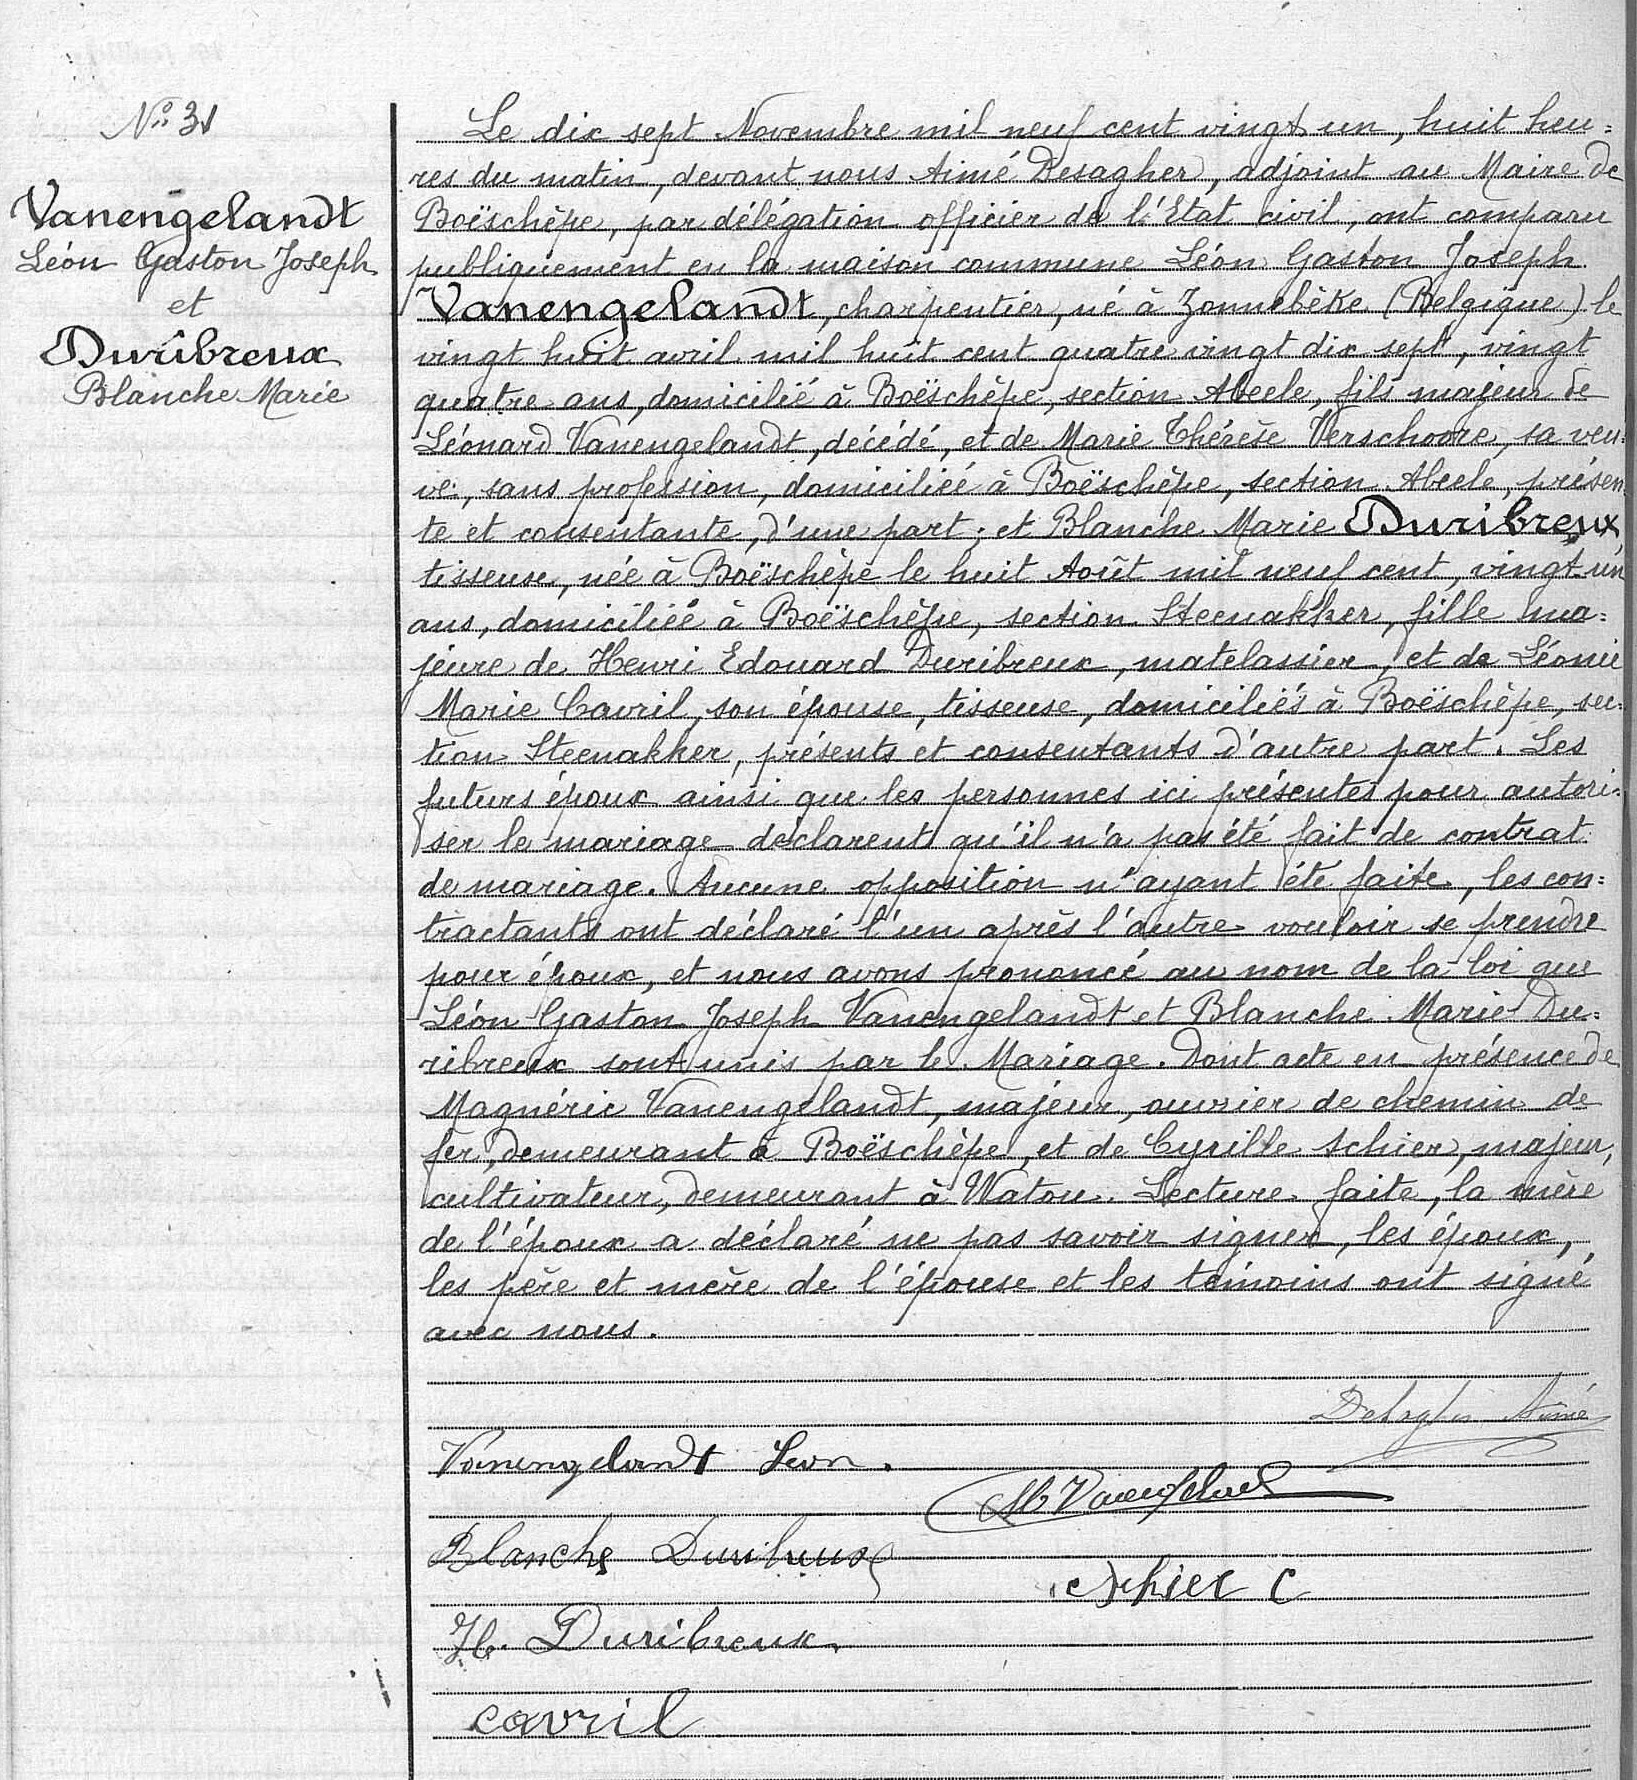 Nº 31
Vanengelandt
Léon Gaston Joseph
et
Duribreux
Blanche Marie
Le dix sept Novembre mil neuf cent vingt un, huit heu=
res du matin, devant nous Aimé Desagher, adjoint au Maire de
Boëschèpe, par délégation officier de l'Etat civil, ont comparu
publiquement en la maison commune Léon Gaston Joseph
Vanengelandt, charpentier, né à Zonnebèke (Belgique) le
vingt huit avril mil huit cent quatre vingt dix sept, vingt
quatre ans, domicilié à Boëschèpe, section Abeele, fils majeur de
Léonard Vanengelandt, décédé, et de Marie Thérèse Verschoore, sa veu=
ve, sans profession, domiciliée à Boëschèpe, section Abeele, présen=
te et consentante, d'une part; et Blanche Marie Duribreux,
tisseuse, née à Boëschèpe le huit Août mil neuf cent, vingt-un
ans, domiciliée à Boëschèpe, section Steenakker, fille ma=
jeure de Henri Edouard Duribreux, matelassier, et de Léonie
Marie Cavril, son épouse, tisseuse, domiciliés à Boëschèpe, sec=
tion Steenakker, présents et consentants d'autre part. Les
futurs époux ainsi que les personnes ici présentes pour autori=
ser le mariage déclarent qu'il n'a pas été fait de contrat
de mariage. Aucune opposition n'ayant été faite, les con=
tractants ont déclaré l'un après l'autre vouloir se prendre
pour époux, et nous avons prononcé au nom de la loi que
Léon Gaston Joseph Vanengelandt et Blanche Marie Du=
ribreux sont unis par le Mariage. Dont acte en présence de
Magnéric Vanengelandt, majeur, ouvrier de chemin de
fer, demeurant à Boëschèpe, et de Cyrille Schier, majeur,
cultivateur, demeurant à Watou. Lecture faite, la mère
de l'époux a déclaré ne pas savoir signer, les époux,
les père et mère de l'épouse et les témoins ont signé
avec nous.
Desagher Aimé
Vanengelandt Leon.
M Vanengelandt
Blanche Duribreux
Schier C
H. Duribreux
cavril